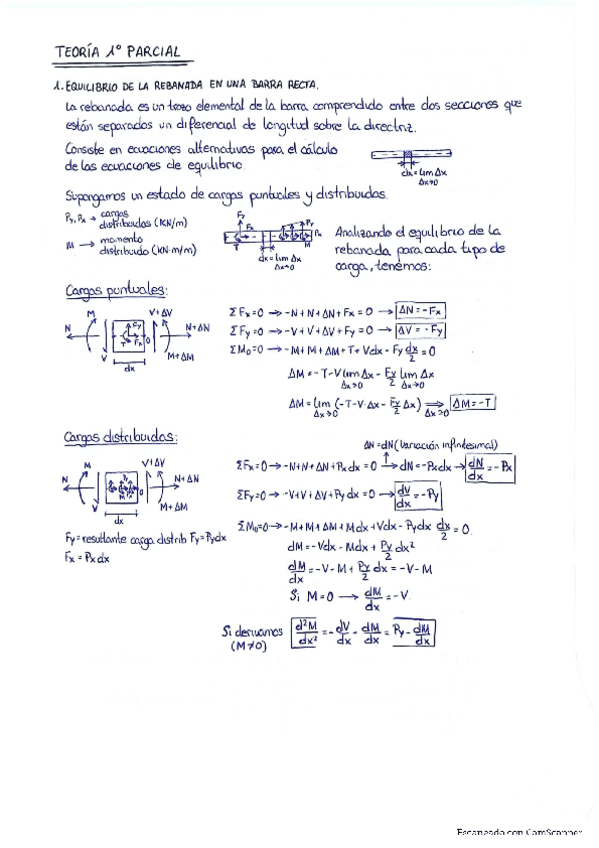 TEORÍA 1º PARCIAL
1. EQUILIBRIO DE LA REBANADA EN UNA BARRA RECTA.
La rebanada es un trozo elemental de la barra comprendido entre dos secciones que
están separadas un diferencial de longitud sobre la directriz.
Consiste en ecuaciones alternativas para el cálculo
de las ecuaciones de equilibrio.
dx = lim Δx
Δx→0
Supongamos un estado de cargas puntuales y distribuidas.
Py, Px → cargas distribuidas (KN/m)
M → momento distribuido (KN·m/m)
Fy
Fx
T
Py
Px
M
dx = lim Δx
Δx→0
Analizando el equilibrio de la
rebanada para cada tipo de
carga, tenemos:
Cargas puntuales:
M V+ΔV
N N+ΔN
Fy
T Fx O
V M+ΔM
dx
ΣFx=0 → -N+N+ΔN+Fx=0 → ΔN=-Fx
ΣFy=0 → -V+V+ΔV+Fy=0 → ΔV=-Fy
ΣMo=0 → -M+M+ΔM+T+Vdx-Fy dx/2=0
ΔM=-T-V lim Δx - Fy/2 lim Δx
Δx→0 Δx→0
ΔM= lim (-T-V·Δx-Fy/2 Δx) ⟹ ΔM=-T
Δx→0 Δx→0
Cargas distribuidas:
ΔN=dN (Variación infinitesimal)
M V+ΔV
N N+ΔN
O
V M+ΔM
dx
ΣFx=0 → -N+N+ΔN+Pxdx=0 → dN=-Pxdx → dN/dx=-Px
ΣFy=0 → -V+V+ΔV+Pydx=0 → dV/dx=-Py
ΣMo=0 → -M+M+ΔM+Mdx+Vdx-Pydx dx/2=0
Fy=resultante carga distrib Fy=Pydx
Fx=Pxdx
dM=-Vdx-Mdx+Py/2 dx²
dM/dx=-V-M+Py/2 dx=-V-M
Si M=0 → dM/dx=-V
Si derivamos d²M/dx²=-dV/dx-dM/dx=Py-dM/dx
(M≠0)
Escaneado con CamScanner